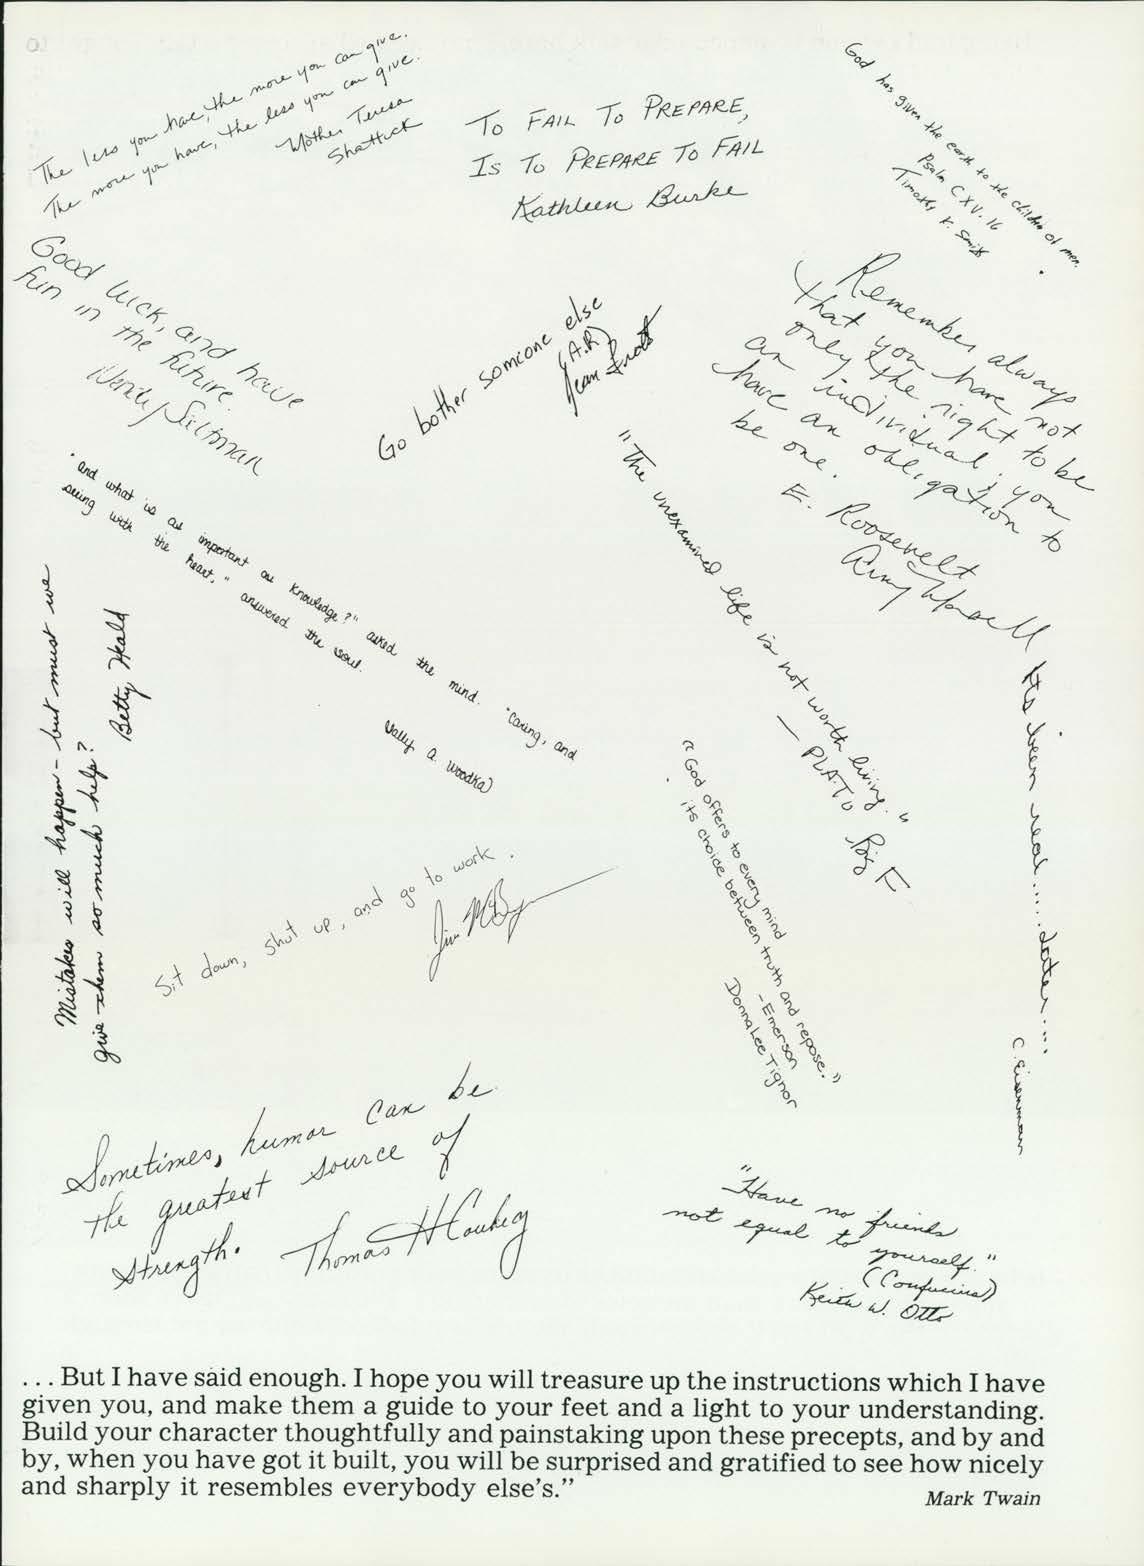 The less you have, the more you can give.
The more you have, the less you can give.
Mother Teresa
Shattuck
TO FAIL TO PREPARE,
IS TO PREPARE TO FAIL
Kathleen Burke
God has given the earth to the children of men.
Psalm CXV. 16
Timothy K. Smith
Good luck, and have
fun in the future.
Wendy Saltzman
Go bother someone else
(A.R.)
Jean
Remember always
that you have not
only the right to be
an individual; you
have an obligation to
be one.
E. Roosevelt
Amy
"and what is as important as knowledge?" asked the mind. "caring, and
seeing with the heart," answered the soul.
Sally A. Woodka
"The unexamined life is not worth living."
— PLATO
Big F
Mistakes will happen - but must we
give them so much help?
Betty Heald
It's been real..... Later....
C. Eisenman
"God offers to every mind
its choice between truth and repose."
- Emerson
Donna Lee Tignor
Sit down, shut up, and go to work.
Jim
Sometimes, humor can be
the greatest source of
strength.
Thomas H
"Have no friends
not equal to yourself."
(Confucius)
Keith W. Otto
... But I have said enough. I hope you will treasure up the instructions which I have
given you, and make them a guide to your feet and a light to your understanding.
Build your character thoughtfully and painstaking upon these precepts, and by and
by, when you have got it built, you will be surprised and gratified to see how nicely
and sharply it resembles everybody else's."
Mark Twain